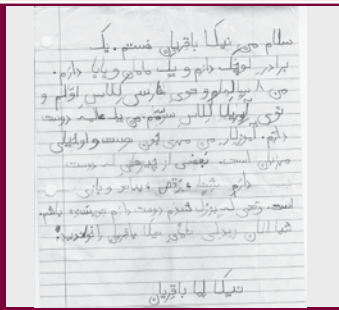 سلام من نیکا باقریان هستم. یک
برادر کوچک دارم و یک مامان و بابا دارم.
من ۸ سالم و توی فارسی کلاس اولم و
توی آمریکا کلاس سوّم. من یک عالمه دوست
دارم. آموزگار من مهری جون هست و او خیلی
مهربان است. بعضی از چیزهایی که دوست
دارم شنا، رقص، پیانو و بازی
است. وقتی که بزرگ شدم دوست دارم باشم.
شما الان زندگی نیکا باقریان را
نیکا لیا باقریان